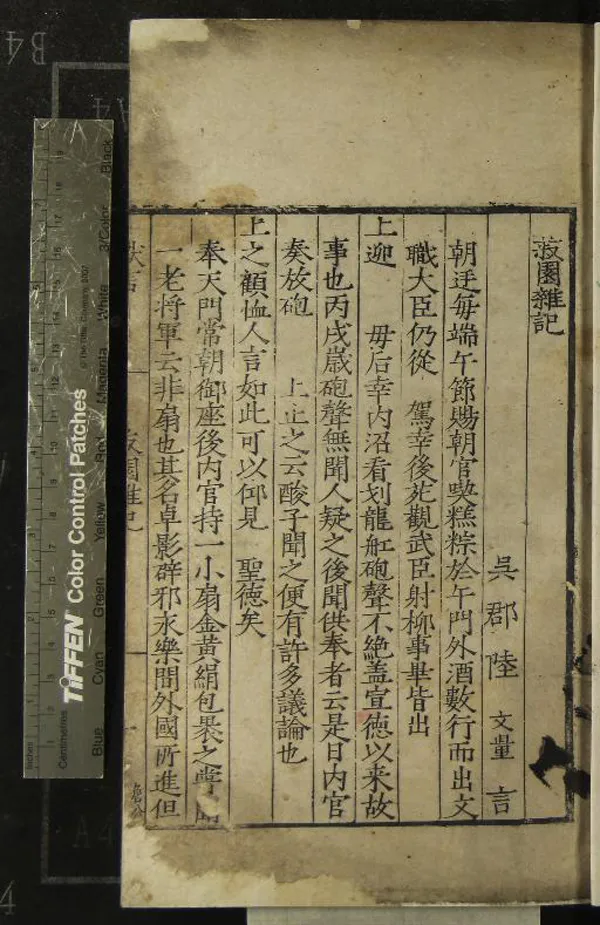 菽園雜記
吳郡陸 文量 言
朝廷每端午節賜朝官喫糕粽於午門外酒數行而出文
職大臣仍從 駕幸後苑觀武臣射柳事畢皆出
上迎 毋后幸内沼看划龍舡砲聲不絶盖宣德以来故
事也丙戌歲砲聲無聞人疑之後聞供奉者云是日内官
奏放砲 上止之云酸子聞之便有許多議論也
上之顧恤人言如此可以仰見 聖德矣
奉天門常朝御座後内官持一小扇金黃絹包褁之
一老将軍云非扇也其名卓影辟邪永樂間外國所進但
菽園雜記
TIFFEN Color Control Patches
© The Tiffen Company, 2007
Inches
Centimetres
Blue Cyan Green Yellow Red Magenta White 3/Color Black
B4
A4
A4